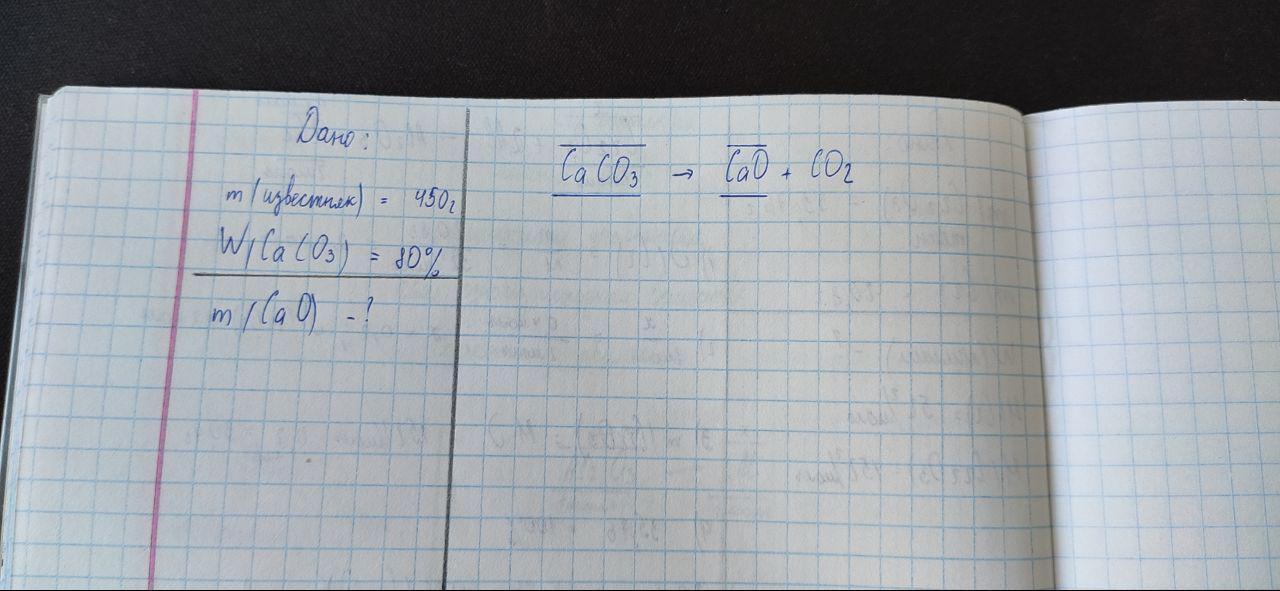 Дано:
m/известняк) = 450г
W/CaCO₃) = 80%
m/CaO) -?
CaCO₃ → CaO + CO₂